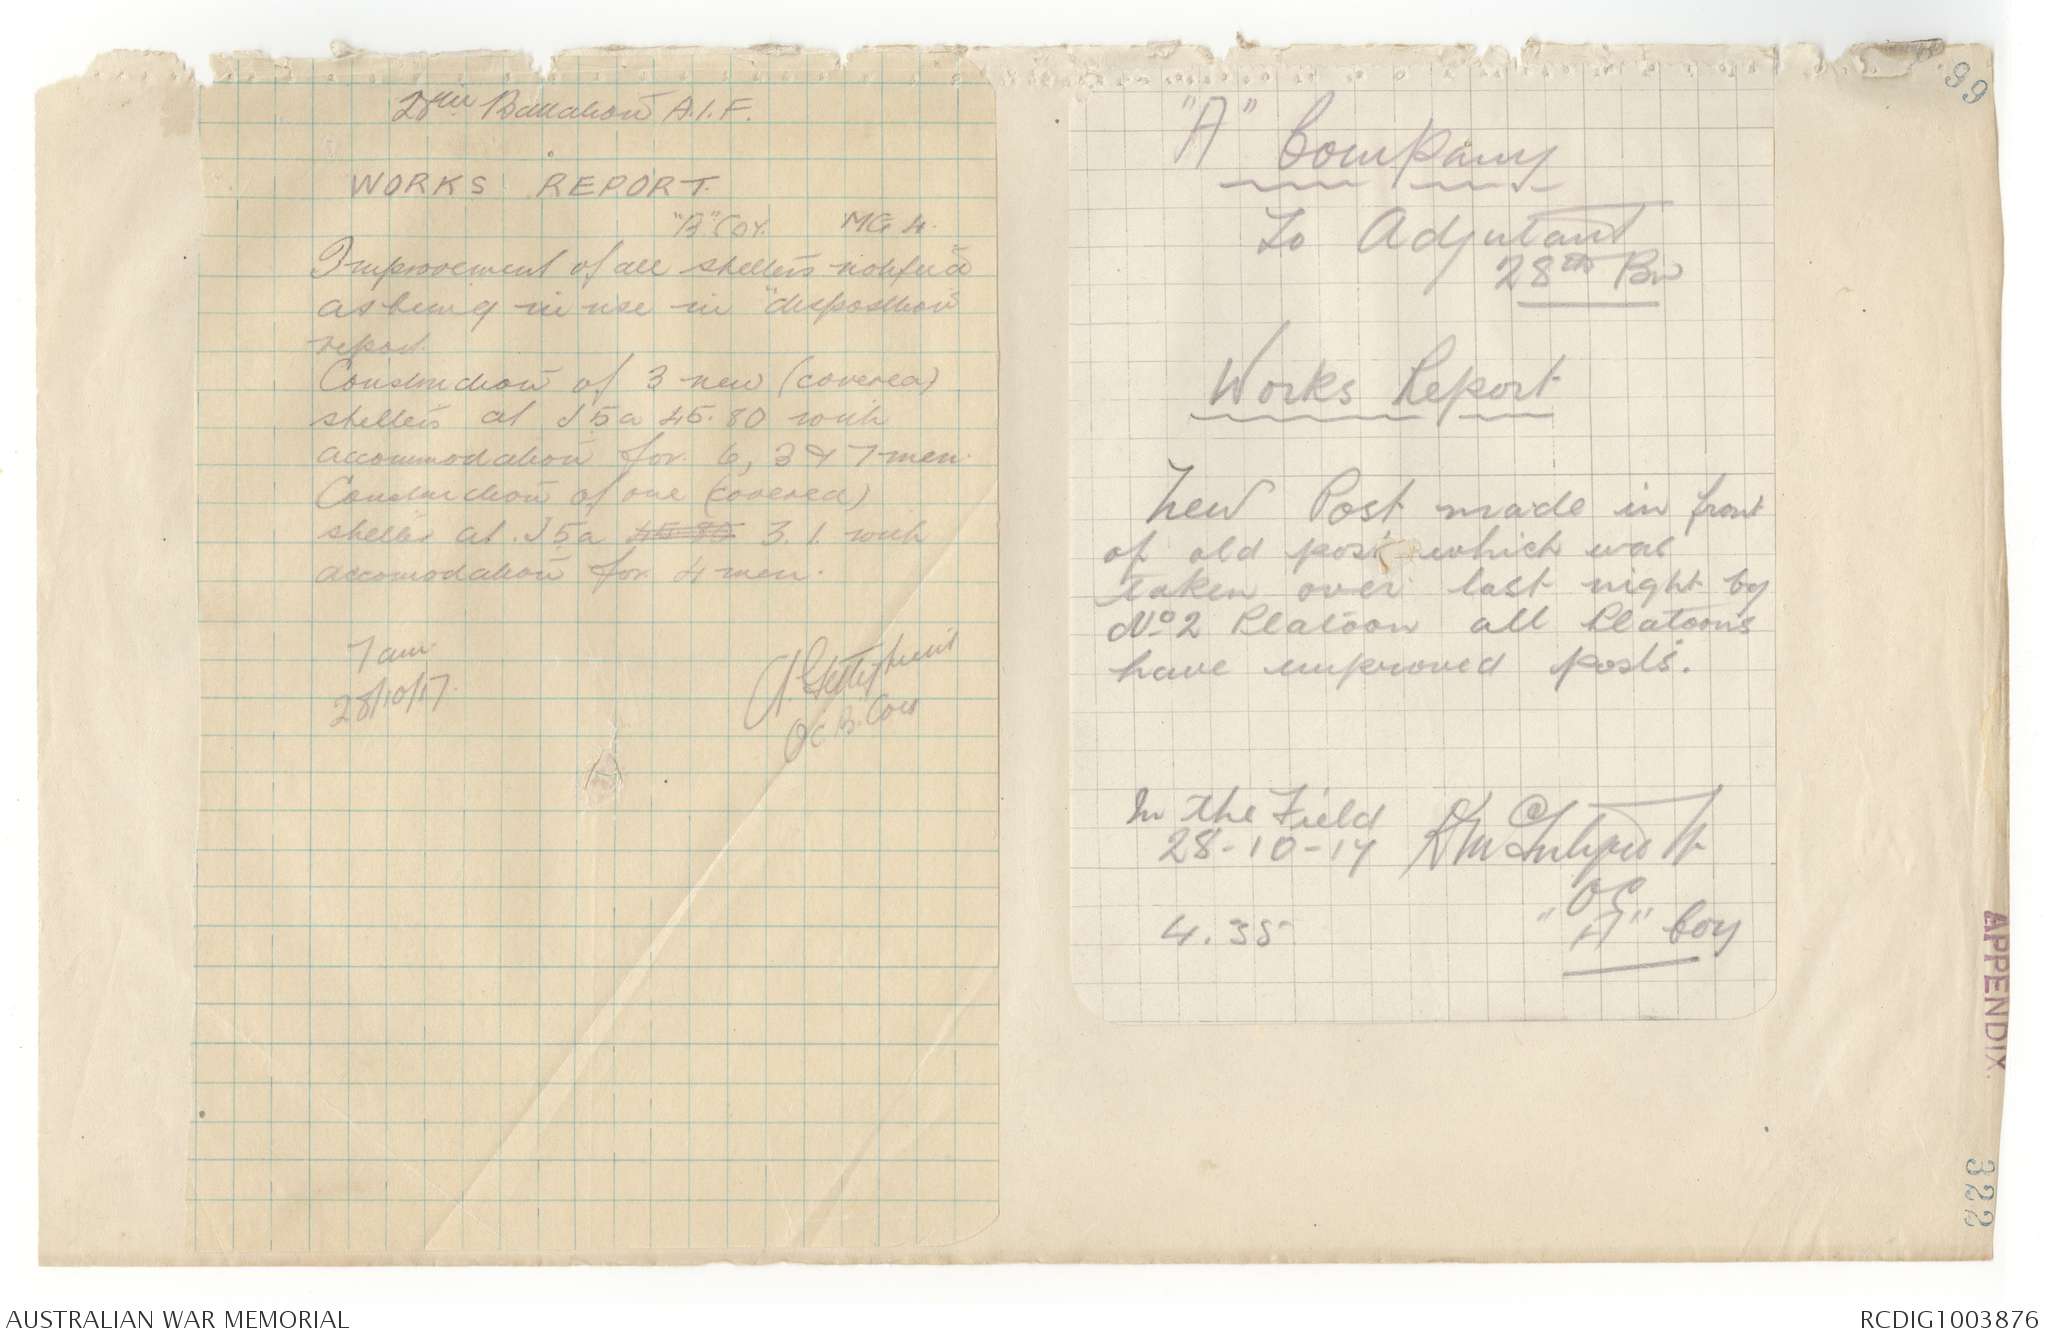 28th Battalion A.I.F.
WORKS REPORT.
"B" Coy. MG 4.
Improvement of all shelters notified
as being in use in "disposition"
report.
Construction of 3 new (covered)
shelters at J5a 45.80 with
accommodation for 6, 3 & 7 men.
Construction of one (covered)
shelter at J5a 45 85 3.1. with
accomodation for 4 men.
7 am.
28/10/17.
OC B. Coy
99
"A" Company
To Adjutant
28th Bn
Works Report
New Post made in front
of old post which was
taken over last night by
No 2 Platoon all Platoons
have improved posts.
In the Field
28-10-17
4.35
OC
"A" Coy
APPENDIX.
322
AUSTRALIAN WAR MEMORIAL
RCDIG1003876